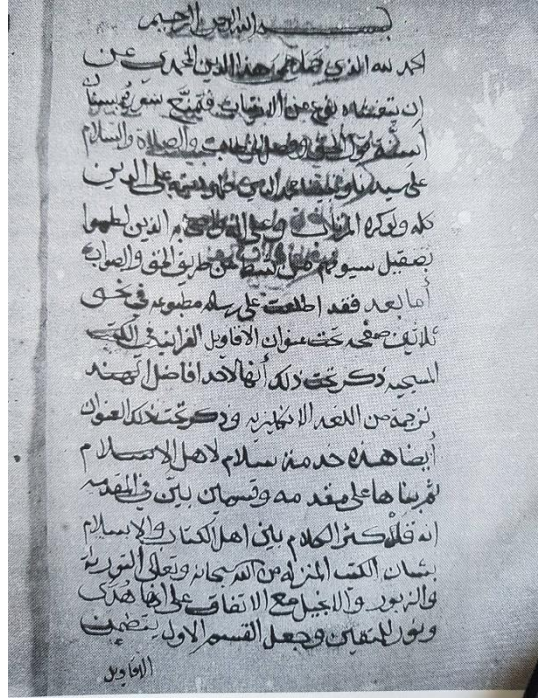 بسم الله الرحمن الرحيم
الحمد لله الذي حمى هذا الدين المحمدي عن
ان
أسنة قول الحق وفصل الخطاب والصلاة والسلام
على سيدنا ومولانا محمد الذي على الدين
كله ولو كره وعلى الذين
بصقيل سيوفهم من عن طريق الحق والصواب
أما بعد فقد اطلعت على رسالة مطبوعة في نحو
ثلاثين صفحه تحت عنوان الاقاويل القرانيه في الكتب
المسيحيه ذكر تحت ذلك أنها لاحد افاضل الهند
ترجمة من اللغه الانكليزيه وذكر تحت ذلك العنوان
أيضا هذه خدمة سلام لاهل الاسلام
ثم بناها على مقدمه وقسمين بين في المقدمه
انه قد كثر الكلام بين اهل الكتاب والاسلام
بشان الكتب المنزله من الله سبحانه وتعالى التوراة
والزبور والانجيل مع الاتفاق على انها هدى
ونور للمتقين وجعل القسم الاول يتضمن
الاقاويل